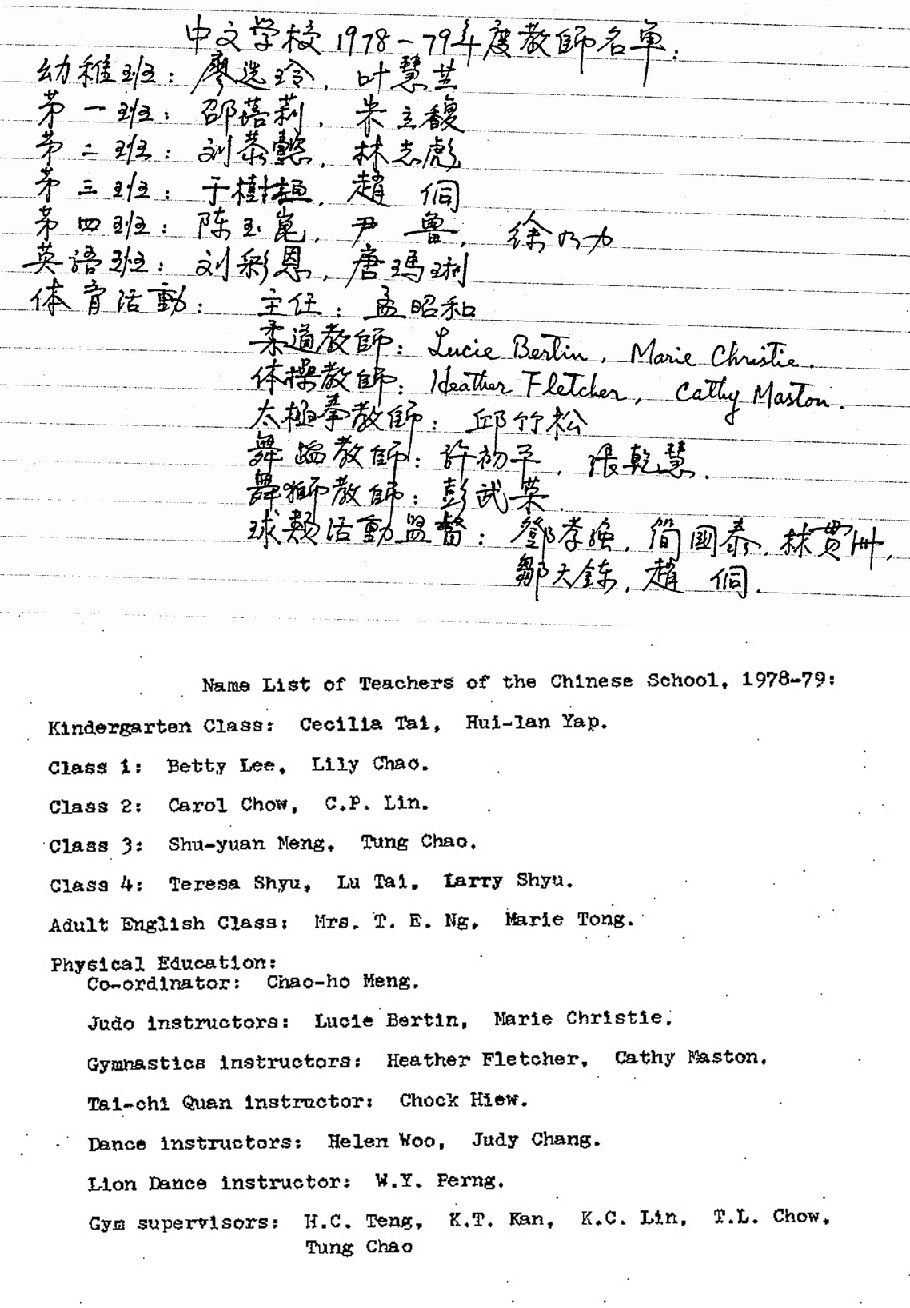 中文学校1978-79年度教師名單:
幼稚班: 廖选玲, 叶慧兰
第一班: 邵蓓莉, 朱立馥
第二班: 刘恭懿, 林志彪
第三班: 于樹桓, 趙侗
第四班: 陈玉崑, 尹魯, 徐乃力
英語班: 刘彩恩, 唐瑪琍
体育活動: 主任: 孟昭和
柔道教師: Lucie Bertin, Marie Christie.
体操教師: Heather Fletcher, Cathy Maston.
太极拳教師: 邱竹松
舞蹈教師: 許初平, 張乾慧.
舞獅教師: 彭武荣.
球類活動监督: 鄧孝強, 简國泰, 林贯州,
鄒大鍊, 趙侗.
Name List of Teachers of the Chinese School, 1978-79:
Kindergarten Class: Cecilia Tai, Hui-lan Yap.
Class 1: Betty Lee, Lily Chao.
Class 2: Carol Chow, C.P. Lin.
Class 3: Shu-yuan Meng, Tung Chao.
Class 4: Teresa Shyu, Lu Tai, Larry Shyu.
Adult English Class: Mrs. T. E. Ng, Marie Tong.
Physical Education:
Co-ordinator: Chao-ho Meng.
Judo instructors: Lucie Bertin, Marie Christie.
Gymnastics instructors: Heather Fletcher, Cathy Maston.
Tai-chi Quan instructor: Chock Hiew.
Dance instructors: Helen Woo, Judy Chang.
Lion Dance instructor: W.Y. Perng.
Gym supervisors: H.C. Teng, K.T. Kan, K.C. Lin, T.L. Chow,
Tung Chao